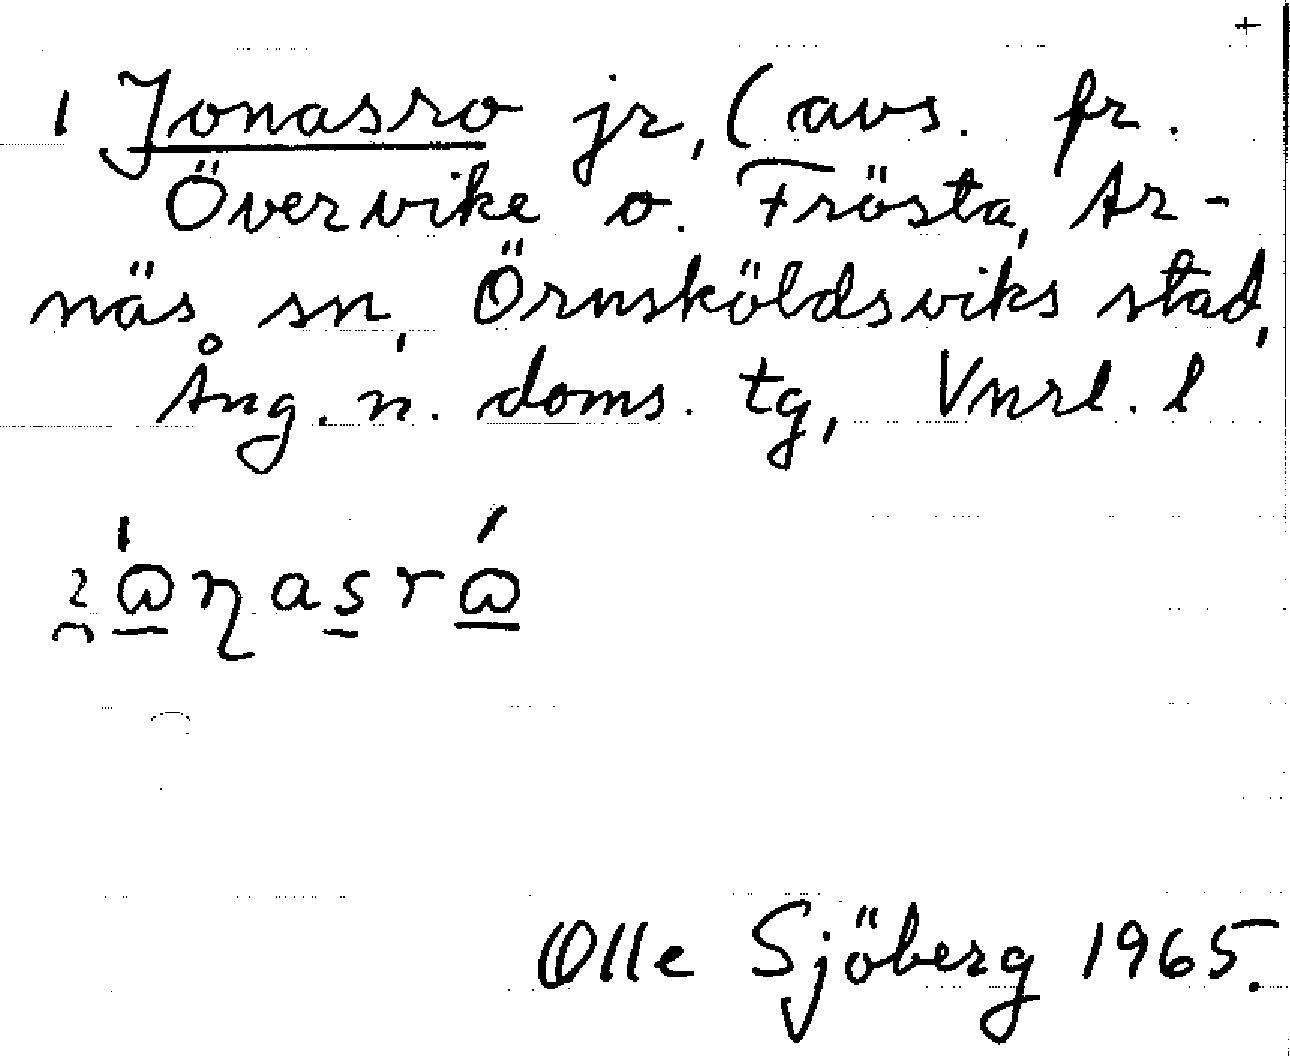 +
1 Jonasro jr, (avs. fr.
Övervike o. Frösta, Ar-
näs sn, Örnsköldsviks stad,
Ång. n. doms. tg, Vnrl. l
Olle Sjöberg 1965.